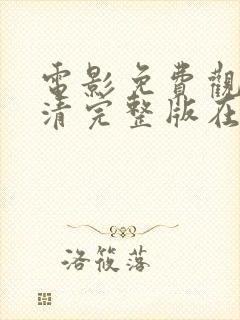 電影免費觀
清完整版在
洛筱落